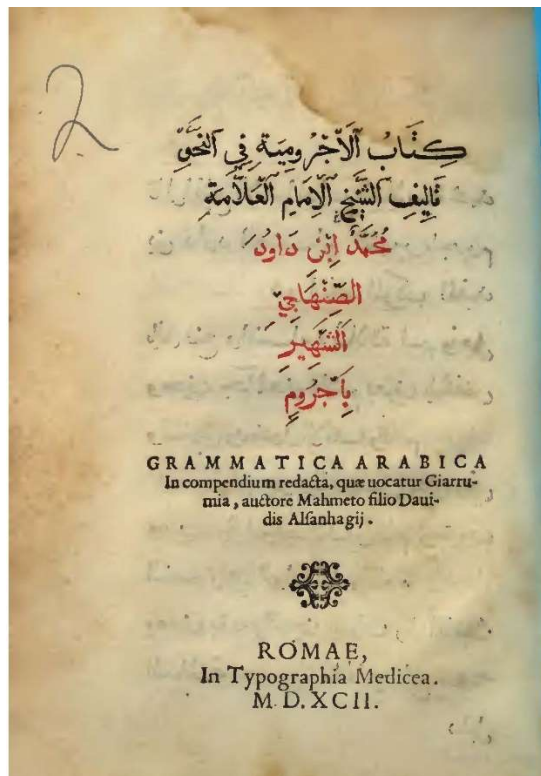 2
كِتَابُ ٱلْآجُرُومِيَةِ فِي ٱلنَّحْوِ
تَالِيفِ ٱلشَّيْخِ ٱلْإِمَامِ ٱلْعَلَّامَةِ
مُحَمَّدَ ٱبْنِ دَاوُدَ
ٱلصِّنْهَاجِيِّ
ٱلشَّهِيرِ
بِآجَرُّومِ
GRAMMATICA ARABICA
In compendium redacta, quæ uocatur Giarru-
mia, auctore Mahmeto filio Daui-
dis Alſanhagij.
ROMAE,
In Typographia Medicea.
M D. XCII.